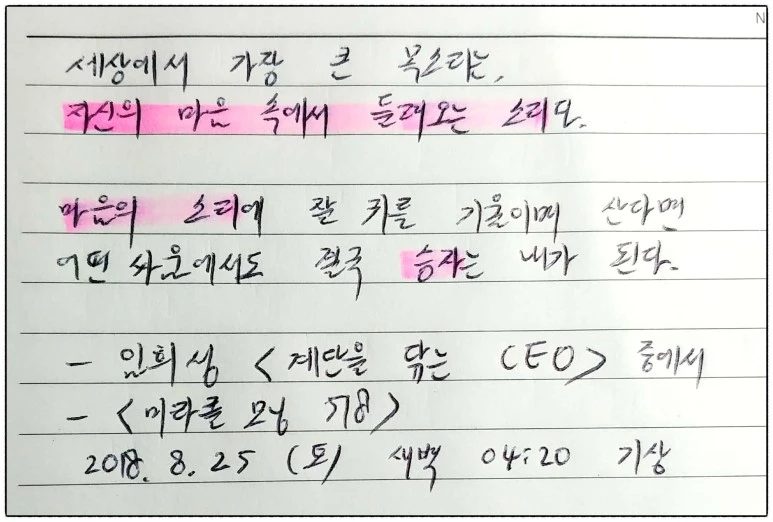 N
세상에서 가장 큰 목소리는,
자신의 마음 속에서 들려오는 소리다.
마음의 소리에 잘 귀를 기울이며 산다면
어떤 싸움에서도 결국 승자는 내가 된다.
- 임희성 <계단을 닦는 CEO> 중에서
- <미라클 모닝 578>
2018. 8. 25 (토) 새벽 04:20 기상